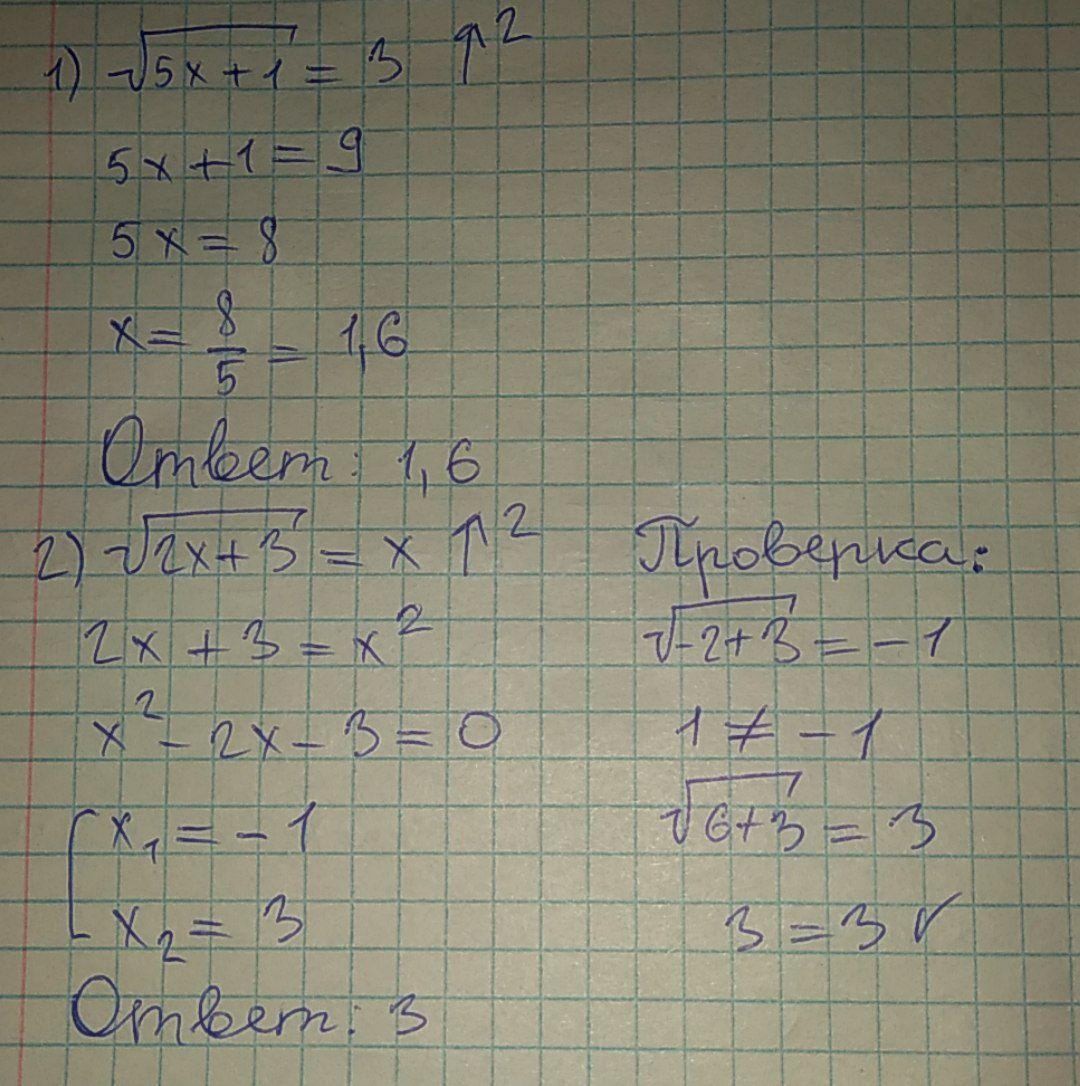 1) √5x+1 = 3 ↑²
5x+1=9
5x=8
x= 8/5 = 1,6
Ответ: 1,6
2) √2x+3 = x ↑²
2x+3=x²
x²-2x-3=0
[x₁=-1
x₂=3
Ответ: 3
Проверка:
√-2+3 = -1
1≠-1
√6+3 = 3
3=3 ✓